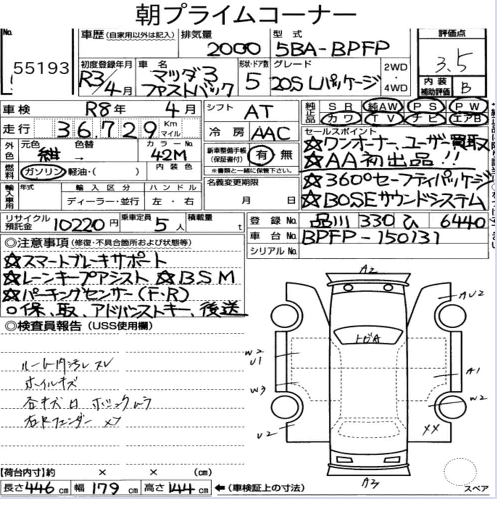 朝プライムコーナー
No. 55193
車歴 (自家用以外は記入) 排気量 2000 型式 5BA-BPFP 評価点 3.5
初度登録年月 R3/4月 車名 マツダ3 ファストバック 形状・ドア数 5 グレード 20S Lパッケージ 2WD・4WD 内装補助評価 B
車検 R8年 4月 シフト AT 純正品 SR 純AW PS PW カワ TV ナビ エアB
走行 36,729 Km マイル 冷房 AAC セールスポイント
外色 元色 紺 → 色替 カラーNo. 42M 内装色
新車整備手帳(保証書付) 有 無 ※書類と一緒に保管下さい。
☆ワンオーナー、ユーザー買取
☆AA初出品!!
燃料 ガソリン 軽油・( )
名義変更期限 月 日
☆360°セーフティパッケージ
☆BOSEサウンドシステム
輸入車用 年式 輸入区分 ディーラー・並行 ハンドル 左・右
リサイクル預託金 10220円 乗車定員 5人 積載量 t 登録No. 品川 330 ひ 6440
車台No. BPFP-150131
シリアルNo.
◎注意事項(修復・不具合箇所および状態等)
☆スマートブレーキサポート
☆レーンキープアシスト ☆BSM
☆パーキングセンサー(F・R)
○保、取、アドバンストキー、後送
◎検査員報告(USS使用欄)
ルーム内汚レ スレ
ホイルキズ
右Fフェンダー
A2
AU2
トビA
W2
U1
W3
A1
W2
U2
XX
A3
【荷台内寸】約 × × (cm)
長さ 446 cm 幅 179 cm 高さ 144 cm ←(車検証上の寸法) スペア